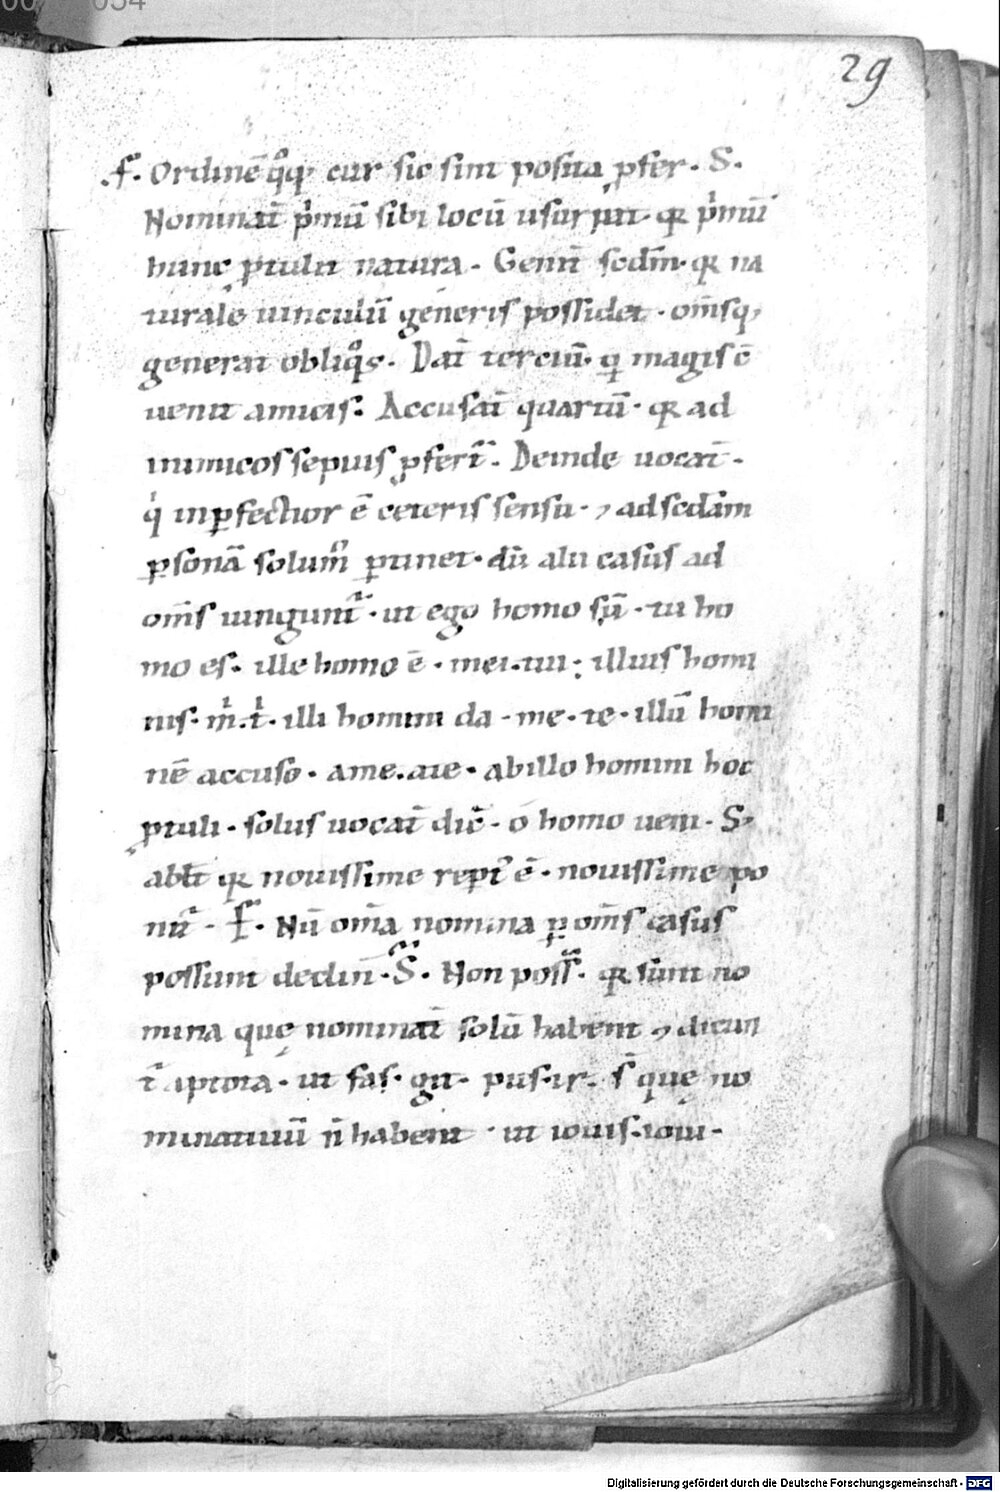 29
.F. Ordinē q̊q; cur sic sint posita ꝓfer. S.
Nominatī p̍mū sibi locū usurpat. qꝛ p̍mū
hunc ꝓtulit natura. Genit̄ scdm̄. qꝛ na
turale uinculū generis possidet. om̄sq;
generat obliq̊s. Dat̄ terciū. q̍ magis c̄
uenit amicis. Accusat̄ quartū. qꝛ ad
inimicos sepius ꝓfert᷑. Deinde uocat̄.
q̍ inꝑfectior ē ceteris sensu. ⁊ ad scdam̄
ꝑsonā solum̊ ꝑtinet. dū alii casus ad
om̄s iungunt᷑. ut ego homo sū. tu ho
mo es. ille homo ē. mei. tui. illius homi
nis. m̍. t̍. illi homini da. me. te. illū homi
nē accuso. a me. a te. ab illo homini hoc
ꝓtuli. solus uocat̄ dic̄. o homo ueni. S;
abl̄t qꝛ nouissime rept᷑ ē. nouissime po
nit᷑. F. Nū om̄a nomina ꝑ om̄s casus
possunt declin̄. S. Non poss̄. qꝛ sunt no
mina quę nominat̄ solū habent ⁊ dicun
t᷑ aptota. ut fas. git. pus. ir. s̄ quę no
minatiuū n̄ habent. ut iouis. ioui.
Digitalisierung gefördert durch die Deutsche Forschungsgemeinschaft - DFG